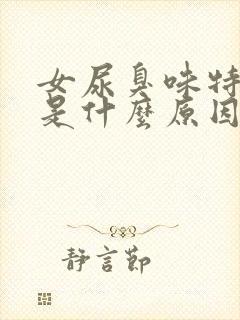 女尿臭味特
是什麼原因
靜言節